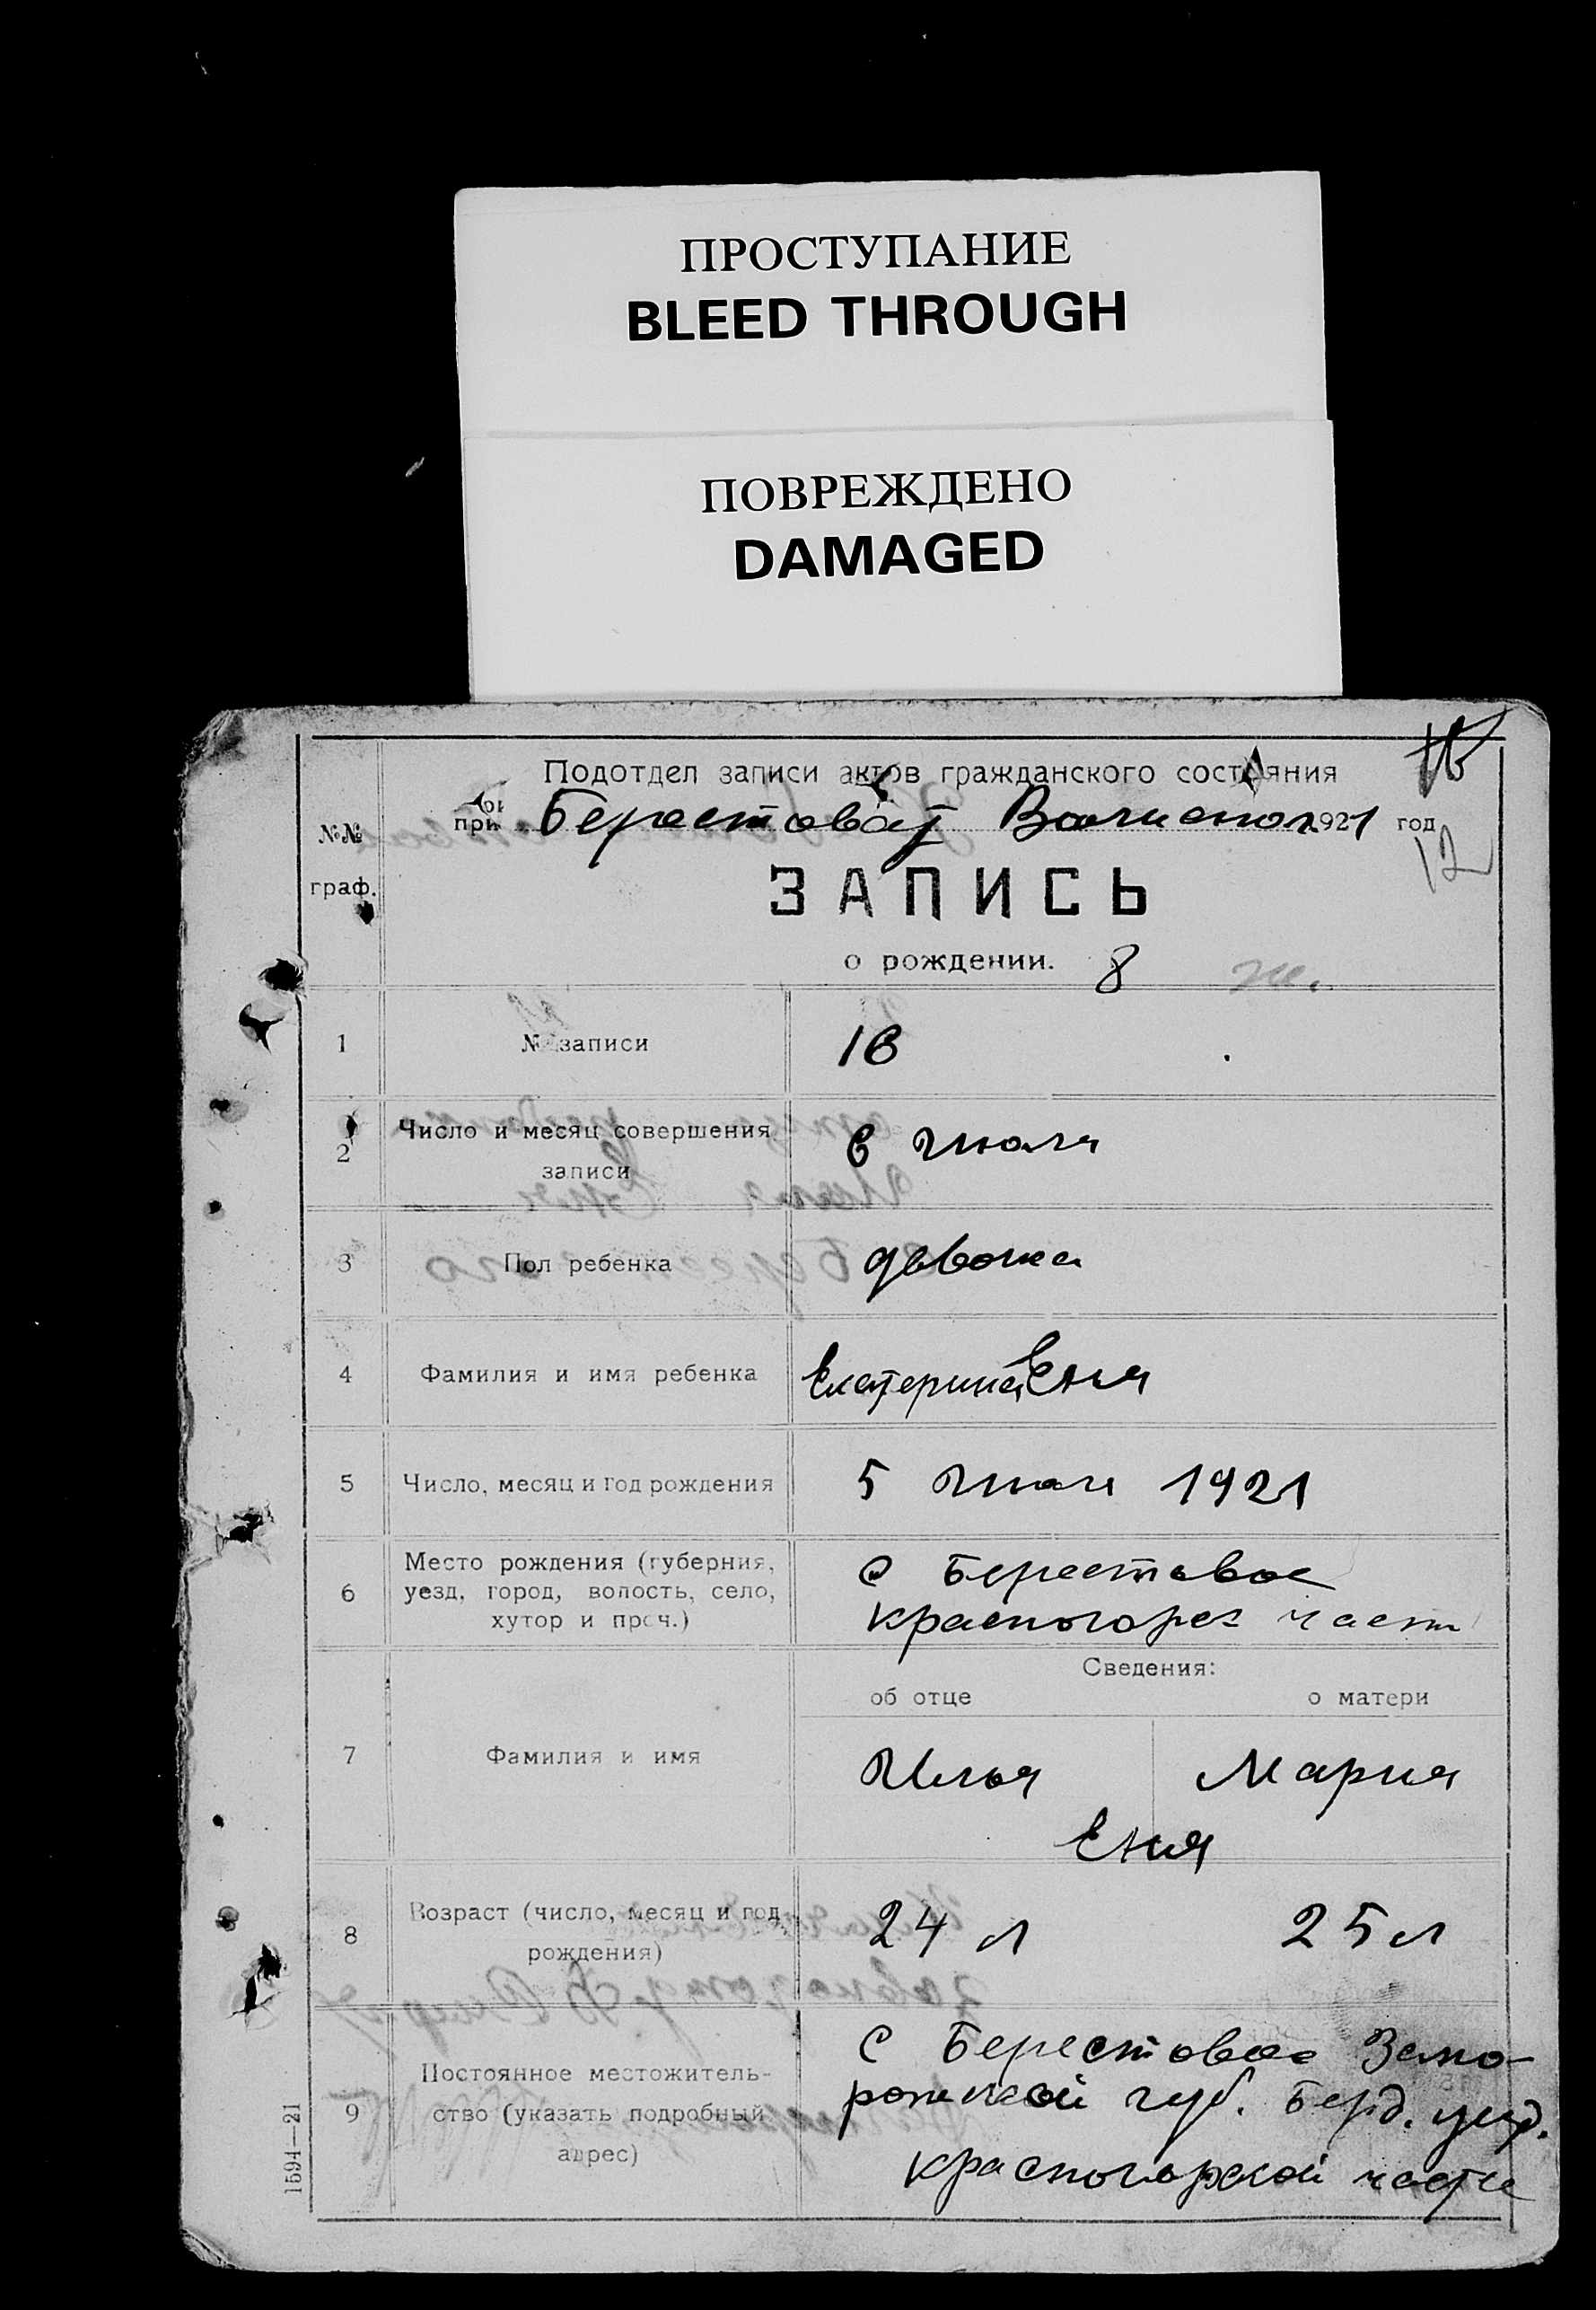 ПРОСТУПАНИЕ
BLEED THROUGH
ПОВРЕЖДЕНО
DAMAGED
Подотдел записи актов гражданского состояния
при Берестовой 1921 год
12
№№
граф.
ЗАПИСЬ
о рождении. 8 ж.
1 № записи 16
2 Число и месяц совершения
записи
6 Июля
3 Пол ребенка девочка
4 Фамилия и имя ребенка Екатерина Еня
5 Число, месяц и год рождения 5 1921
6 Место рождения (губерния,
уезд, город, волость, село,
хутор и проч.)
С Берестовое
Красногорск част
Сведения:
об отце о матери
7 Фамилия и имя Илья Мария
Еня
8 Возраст (число, месяц и год
рождения)
24 л 25 л
9 Постоянное местожитель-
ство (указать подробный
адрес)
С Берестовое Запо-
рожской губ. Берд. уезд.
Красногорской части
1594—21